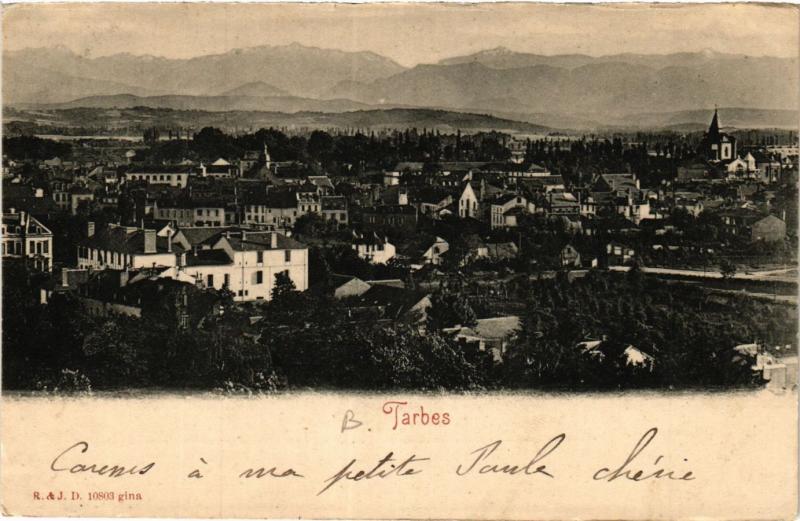 B. Tarbes
Caresses à ma petite Paule chérie
R. & J. D. 10803 gina